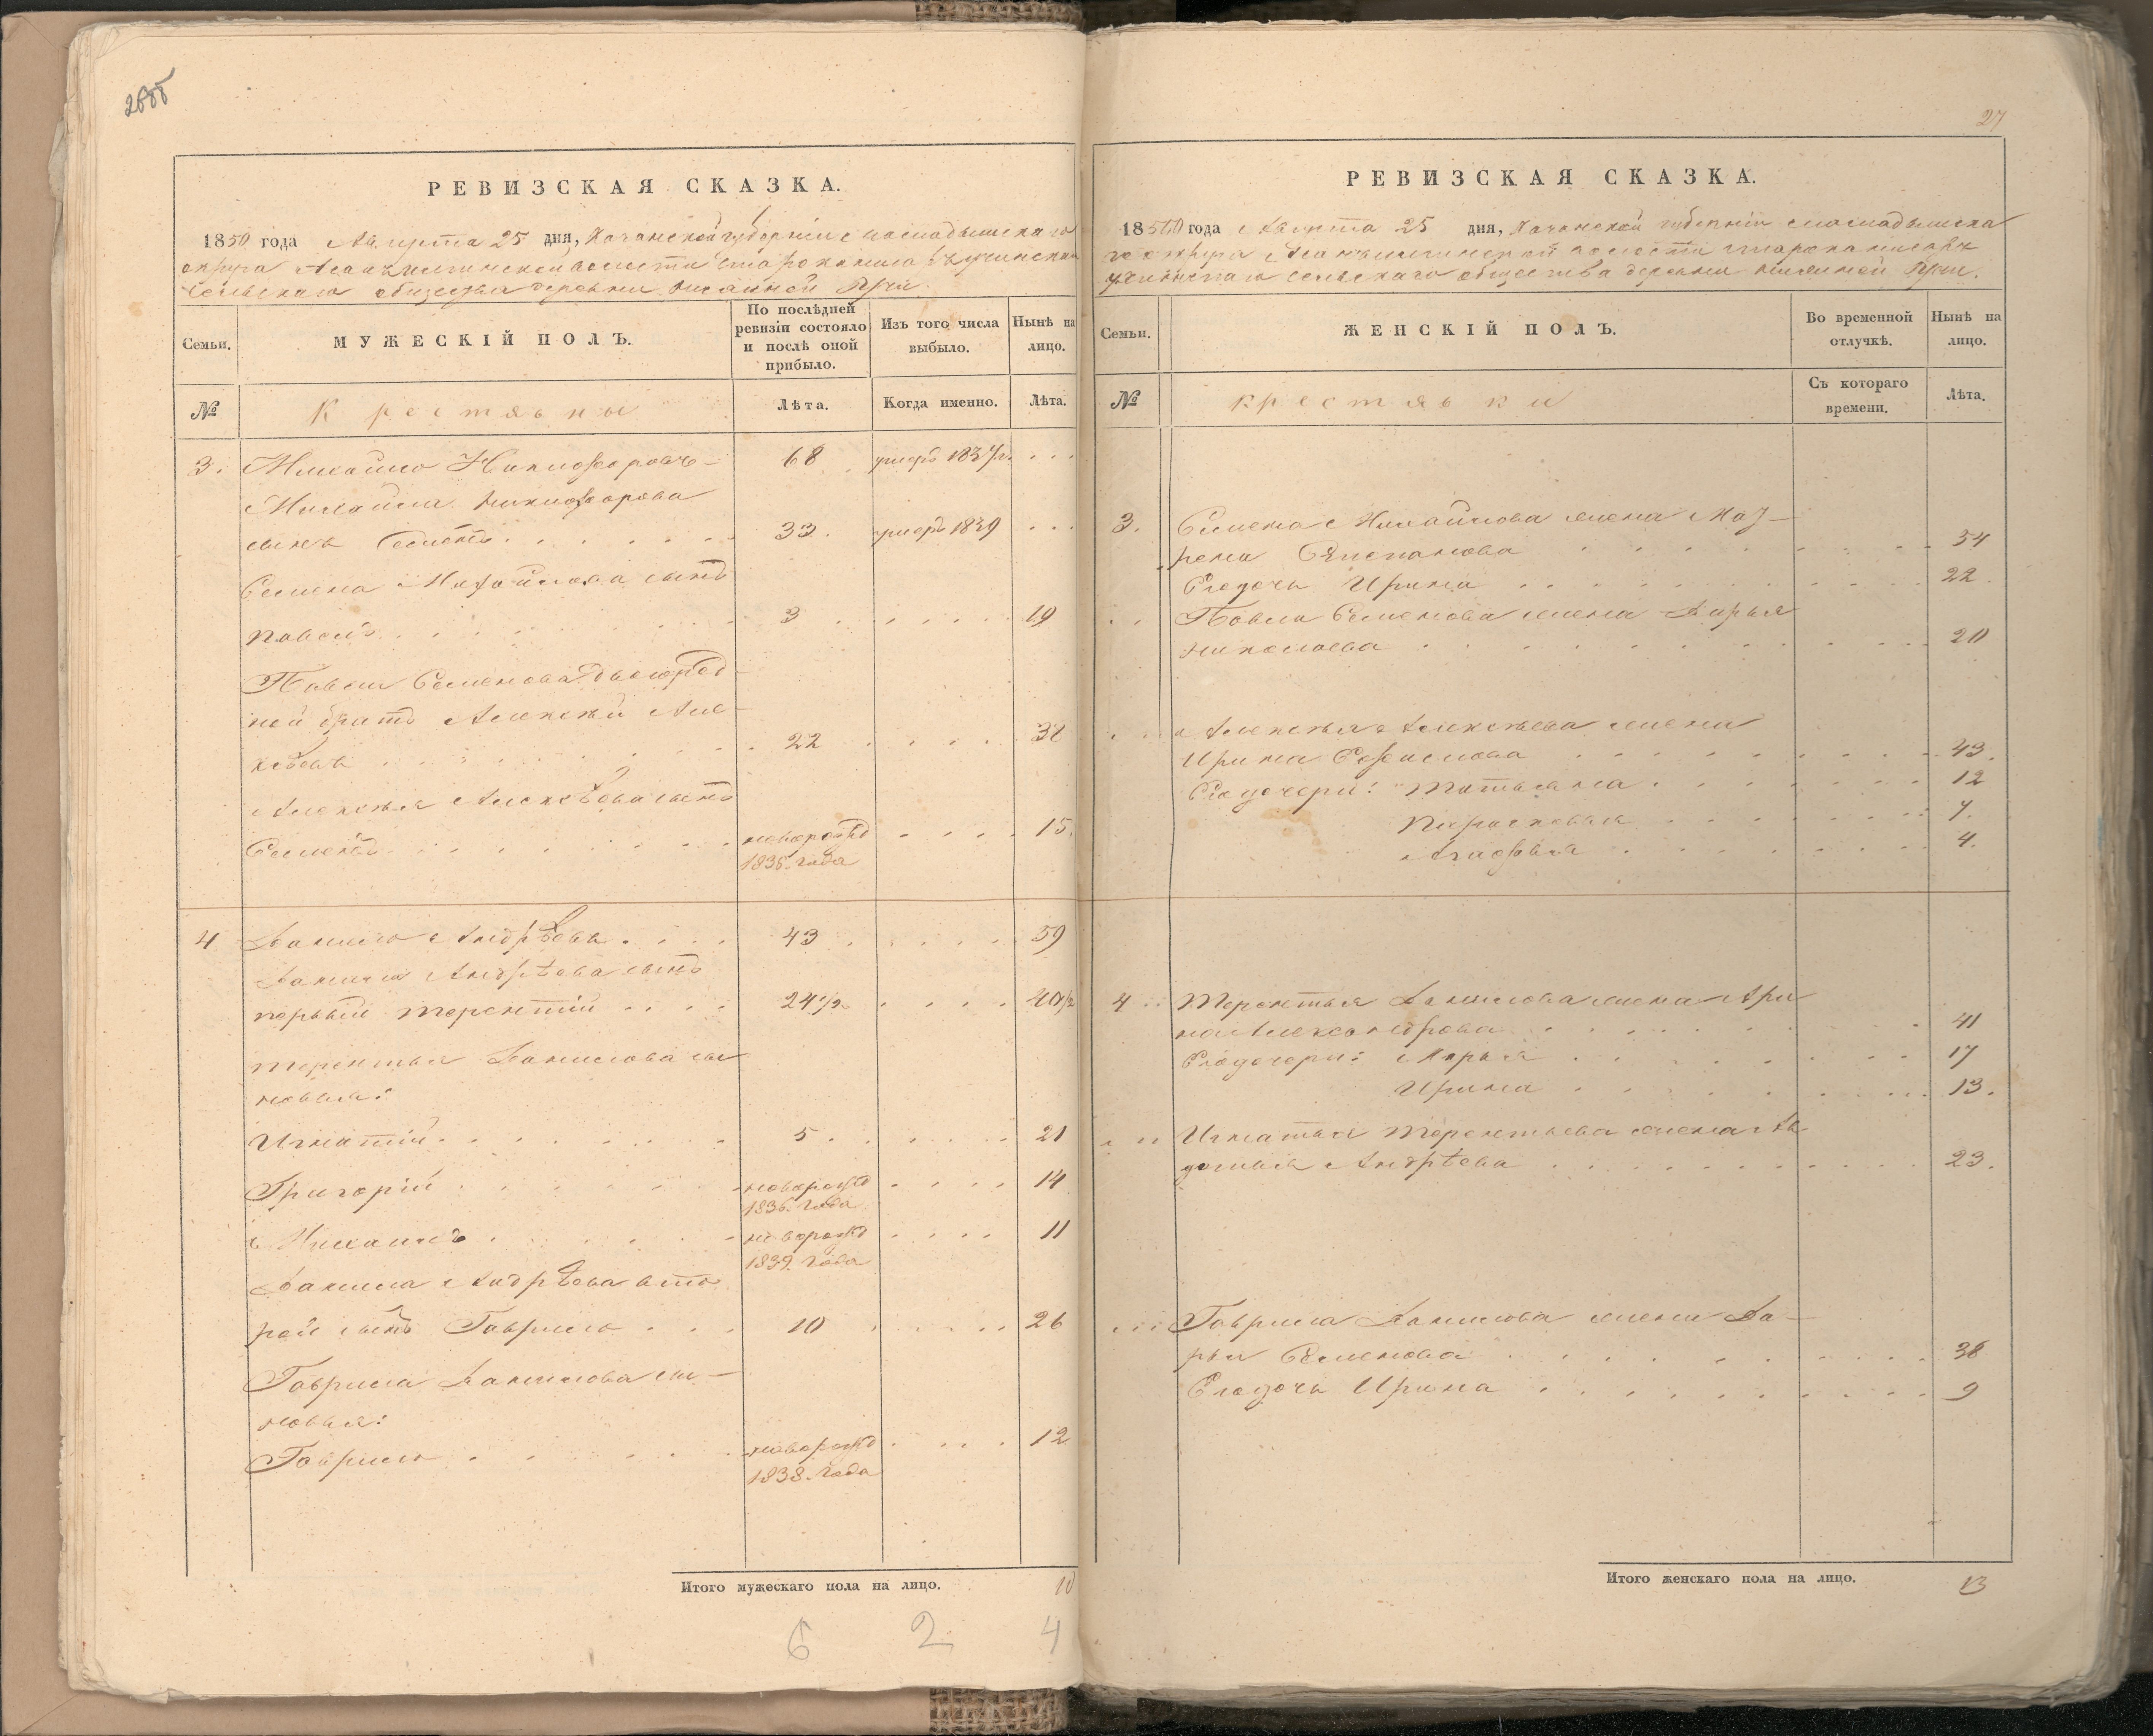 2688
РЕВИЗСКАЯ СКАЗКА.
1850 года Августа 25 дня, Казанской губернiи Спасскаго
округа волости
сельскаго общества деревни
Семьи.
МУЖЕСКІЙ ПОЛЪ.
По послѣдней ревизіи состояло и послѣ оной прибыло.
Изъ того числа выбыло.
Нынѣ на лицо.
№
Крестьяны
Лѣта.
Когда именно.
Лѣта.
3. Михайло Никифоровъ 68 умеръ 1837г. . . .
Михайла Никифорова
сынъ Семенъ 33 умеръ 1839 . . .
Семена Михайлова сынъ
Павелъ 3 19
Павла Семенова двоюрод-
ной братъ Алексѣй Але-
ксѣевъ 22 38
Алексѣя Алексѣева сынъ
Семенъ новорожд 15.
1835. года
4 Данило Андрѣевъ 43 59
Данила Андрѣева сынъ
первый Терентiй 24 1/2 40 1/2
Терентья Данилова сы
новья:
Игнатiй 5 21
Григорiй новорожд 14
1836. года
Михаилъ новорожд 11
1839. года
Данила Андрѣева вто
рой сынъ Гаврило 10 26
Гаврила Данилова сы-
новья:
Гаврило новорожд 12
1838. года
Итого мужескаго пола на лицо. 10
6 2 4
27
РЕВИЗСКАЯ СКАЗКА.
1850 года Августа 25 дня, Казанской губернiи
го округа волости
сельскаго общества деревни
Семьи.
ЖЕНСКІЙ ПОЛЪ.
Во временной отлучкѣ.
Нынѣ на лицо.
№
крестьянки
Съ котораго времени.
Лѣта.
3. Семена Михайлова жена Мат-
рена Степанова 54
Его дочь Ирина 22
Павла Семенова жена Дарья
Николаева 20
Алексѣя Алексѣева жена
Ирина 43.
Его дочери: Татьяна 12
Парасковья 7.
Агафья 4.
4 Терентья Данилова жена Ари
на Александрова 41
Его дочери: Марья 17
Ирина 13.
Игнатья Терентьева жена Ав
дотья Андрѣева 23.
Гаврила Данилова жена Да-
рья Семенова 38
Его дочь Ирина 9
Итого женскаго пола на лицо. 13